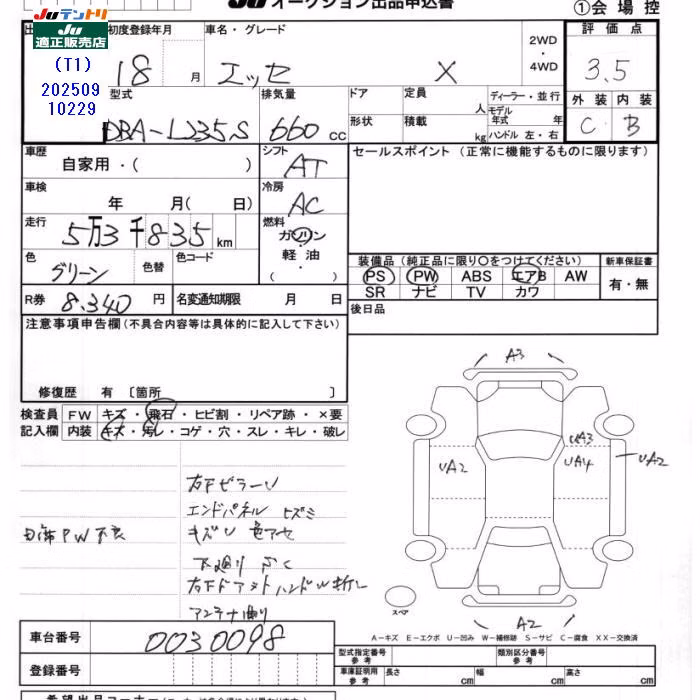 JUテントリ
JU
適正販売店
(T1)
202509
10229
JU オークション出品申込書
①会場控
初度登録年月
18 月
車名・グレード
エッセ X
2WD
・
4WD
評価点
3.5
外装 内装
C B
型式
DBA-L235S
排気量
660 cc
ドア
定員 人
形状
積載 kg
ディーラー・並行
モデル
年式 年
ハンドル 左・右
車歴
自家用・( )
シフト
AT
車検
年 月( 日)
冷房
AC
走行
5万3千835 km
燃料
ガソリン
・
軽油
・
( )
色
グリーン
色替
色コード
R券 8,340 円
名変通知期限 月 日
セールスポイント (正常に機能するものに限ります)
装備品(純正品に限り○をつけてください)
新車保証書
PS PW ABS エアB AW
SR ナビ TV カワ
有・無
後日品
注意事項申告欄(不具合内容等は具体的に記入して下さい)
修復歴 有 〔箇所 〕
検査員
記入欄
FW キズ・飛石・ヒビ割・リペア跡・×要
内装 キズ・汚レ・コゲ・穴・スレ・キレ・破レ
エンドパネル ヒズミ
キズU 色アセ
PW不良
アンテナ曲り
A3
UA3
UA2
UA4
UA2
A2
スペア
A-キズ E-エクボ U-凹み W-補修跡 S-サビ C-腐食 XX-交換済
車台番号 0030098
登録番号
型式指定番号
参考
類別区分番号
参考
車庫証明用
参考
長さ cm
幅 cm
高さ cm